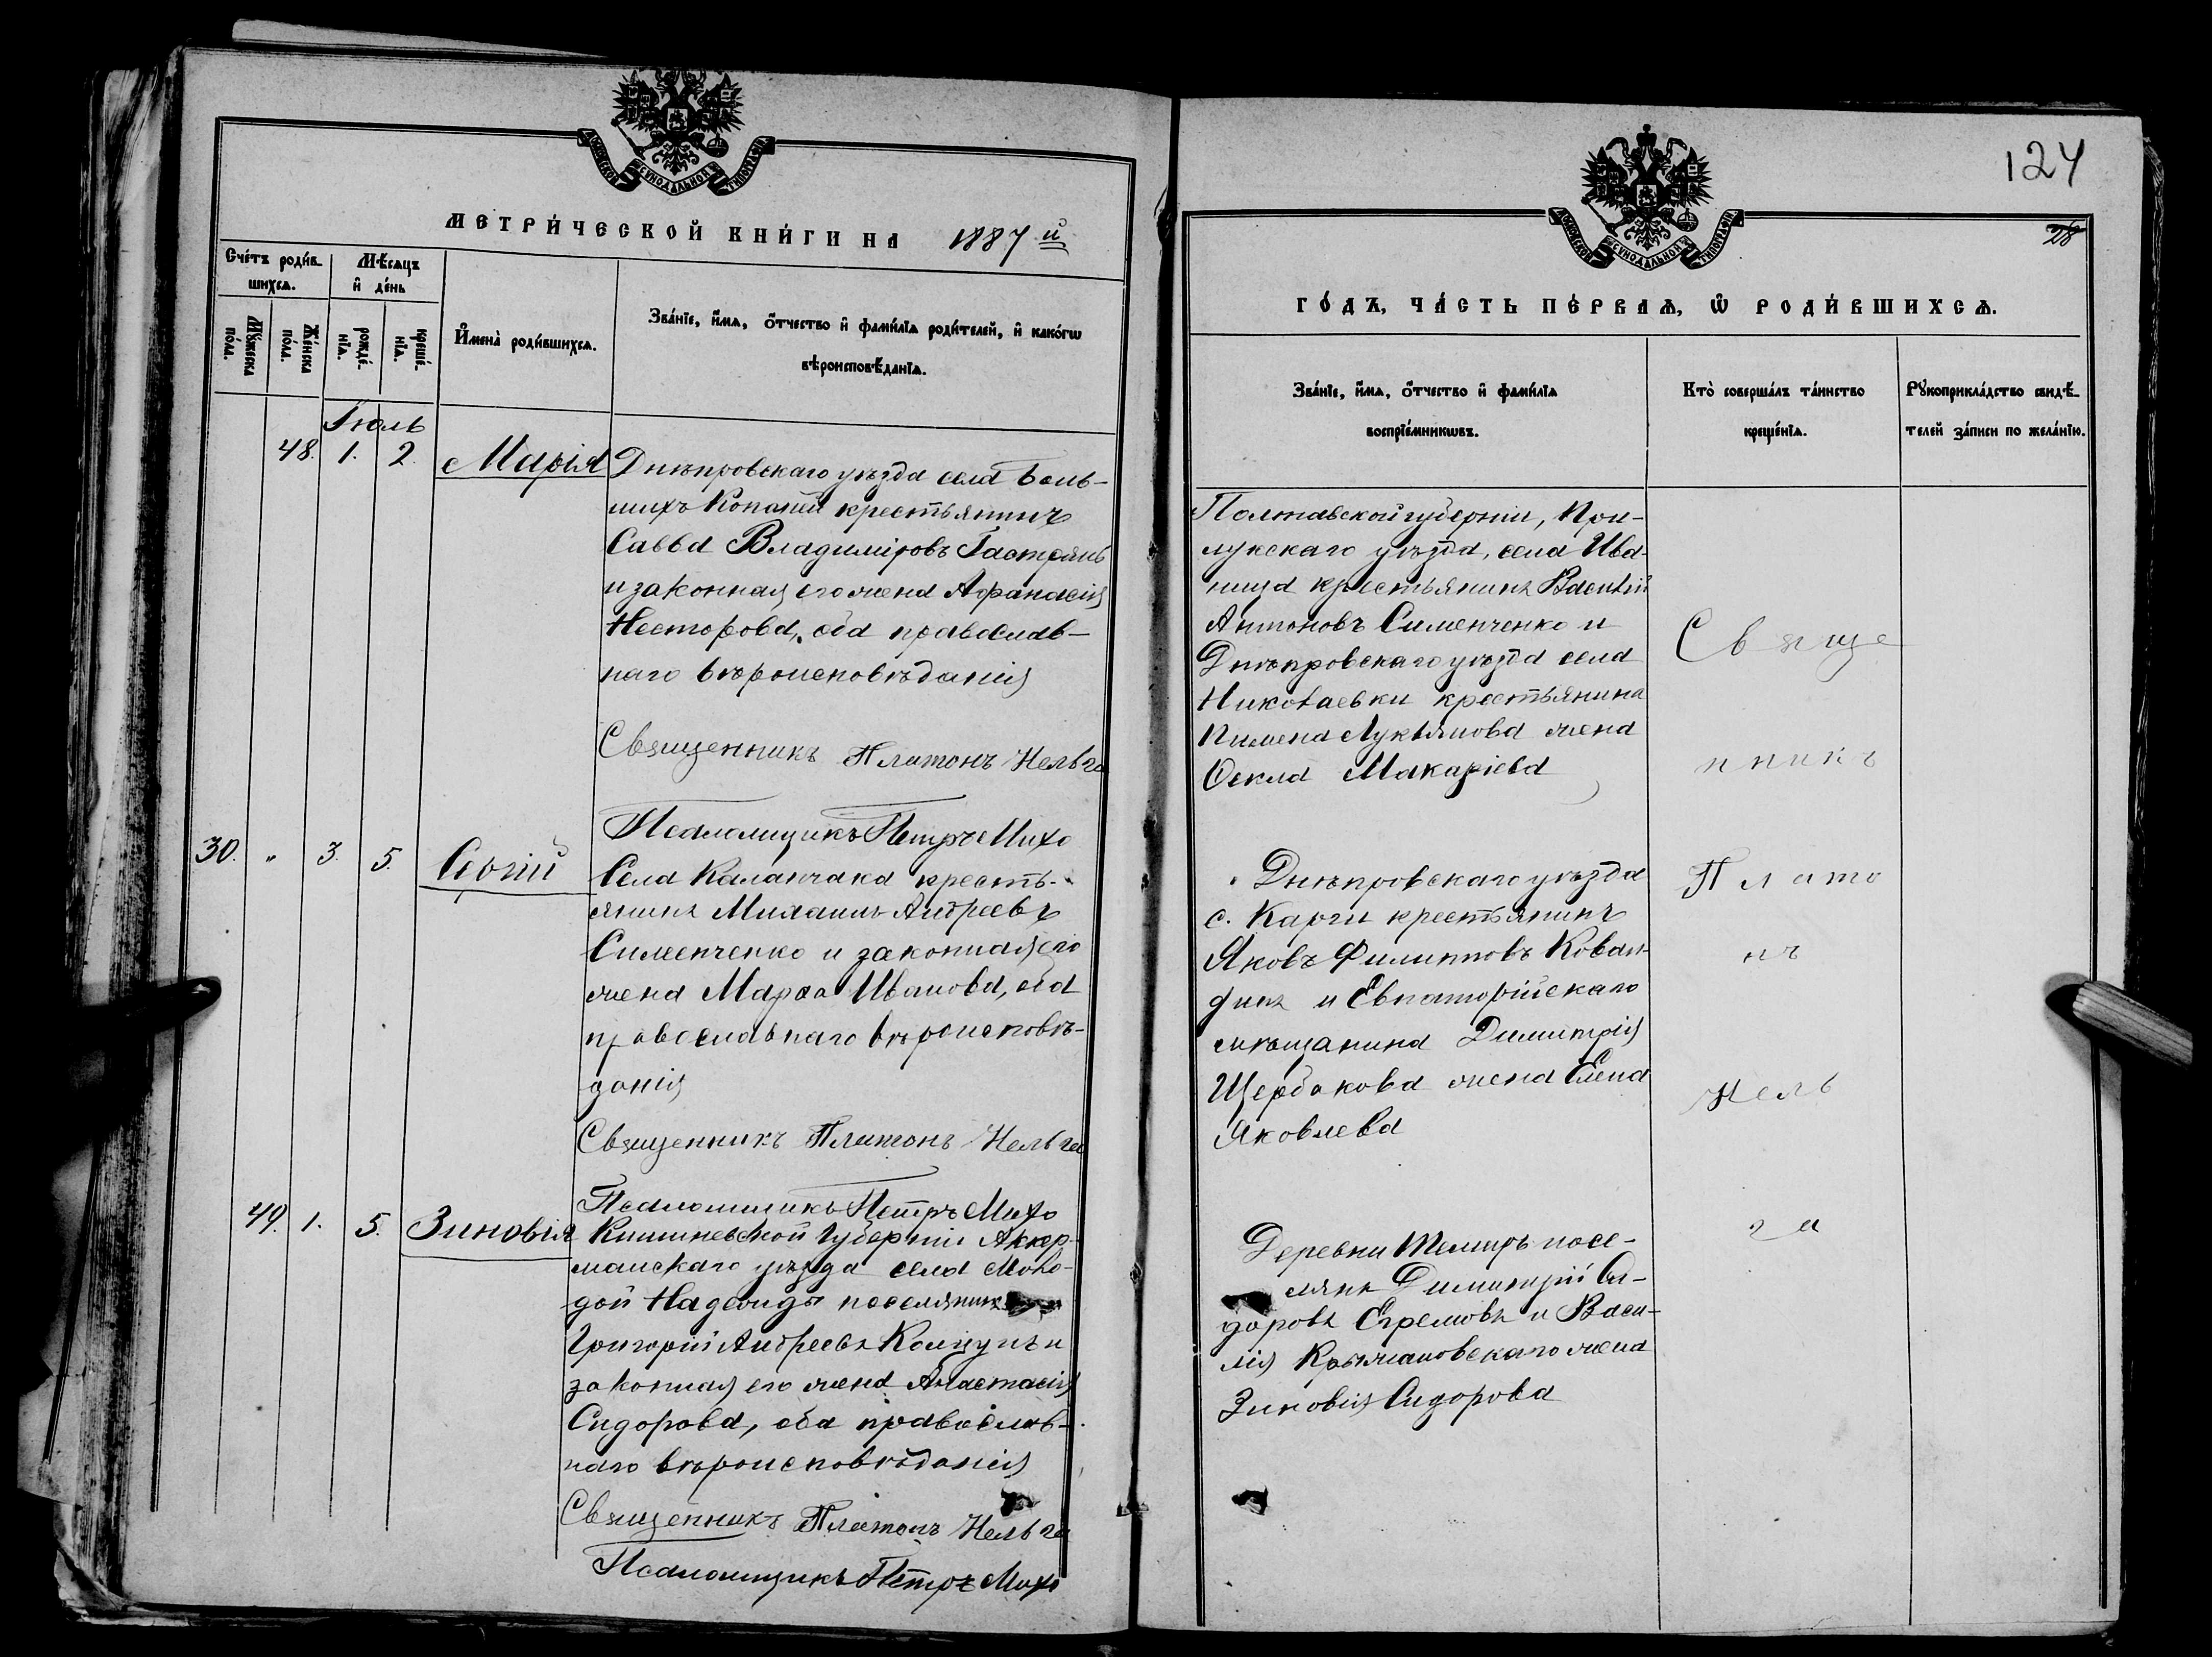 МЕТРИ́ЧЕСКОЙ КНИ́ГИ НА 1887 й
Сче́тъ роди́в-
шихсѧ.
Мѣ́сѧцъ
и҆ де́нь
Мꙋ́жеска
по́ла.
Же́нска
по́ла.
рожде́-
нїѧ.
креще́-
нїѧ.
И҆мена̀ роди́вшихсѧ.
Зва́нїе, и҆́мѧ, ѻ҆́тчество и҆ фами́лїѧ роди́телей, и҆ како́гѡ
вѣроисповѣ́данїѧ.
Іюль
48. 1. 2. Марія
Днѣпровскаго уѣзда села Боль-
шихъ Копаней крестьянинъ
Савва Владиміровъ
и законная его жена Афанасія
Несторова, оба православ-
наго вѣроисповѣданія
Священникъ Платонъ Нельга
Псаломщикъ Петръ Михо
30. " 3. 5. Сергій
Села Каланчака кресть-
янинъ Михаилъ Андреевъ
Сименченко и законная его
жена Марѳа Иванова, оба
православнаго вѣроисповѣ-
данія
Священникъ Платонъ Нельга
Псаломщикъ Петръ Михо
49. 1. 5. Зиновія
Кишиневской Губерніи Аккер-
манскаго уѣзда села Моло-
дой Надежды поселянинъ
Григорій Андреевъ Колцунъ и
законная его жена Анастасія
Сидорова, оба православ-
наго вѣроисповѣданія
Священникъ Платонъ Нельга
Псаломщикъ Петръ Михо
124
28
ГО́ДЪ, ЧА́СТЬ ПЕ́РВАѦ, Ѡ҆ РОДИ́ВШИХСѦ.
Зва́нїе, и҆́мѧ, ѻ҆́тчество и҆ фами́лїѧ
воспрїе́мникѡвъ.
Кто̀ соверша́лъ та́инство
креще́нїѧ.
Рꙋкоприкла́дство свидѣ́-
телей за́писи по жела́нїю.
Полтавской губерніи, При-
лукскаго уѣзда, села Ива-
ница крестьянинъ Василій
Антоновъ Сименченко и
Днѣпровскаго уѣзда села
Николаевки крестьянина
Пимена Лукьянова жена
Ѳекла Макаріева
Днѣпровскаго уѣзда
с. Карги крестьянинъ
Яковъ Филипповъ Ковал-
и Евпаторійскаго
мѣщанина Димитрія
Щербакова жена Елена
Яковлева
Деревни Темиръ посе-
лянъ Димитрій Си-
доровъ Ефремовъ и Васи-
лія Крыжановскаго жена
Зиновія Сидорова
Свяще
нникъ
Плато
нъ
Нель
га